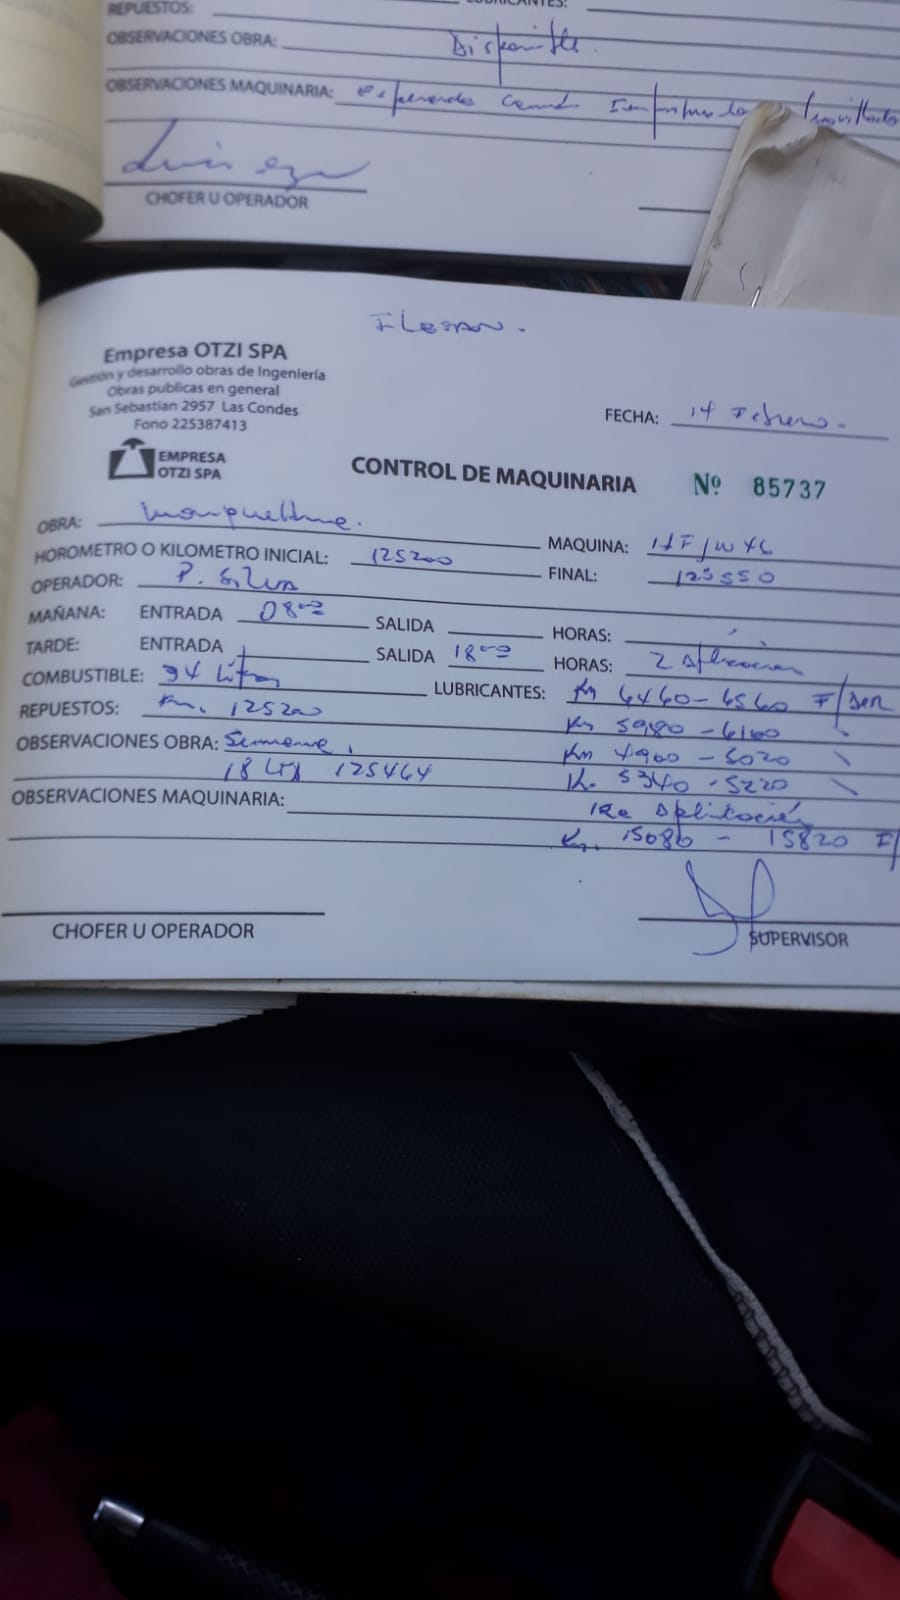 REPUESTOS:
LUBRICANTES:
OBSERVACIONES OBRA: Disponible.
OBSERVACIONES MAQUINARIA: esperando
CHOFER U OPERADOR
Empresa OTZI SPA
Gestión y desarrollo obras de Ingeniería
Obras publicas en general
San Sebastian 2957 Las Condes
Fono 225387413
EMPRESA
OTZI SPA
FECHA: 14 Febrero.
CONTROL DE MAQUINARIA Nº 85737
OBRA:
MAQUINA:
HOROMETRO O KILOMETRO INICIAL: 125200
FINAL: 125550
OPERADOR: P. Silva
MAÑANA: ENTRADA 08 00 SALIDA HORAS:
TARDE: ENTRADA SALIDA 18 00 HORAS: 2
COMBUSTIBLE: 34 Litros LUBRICANTES: Km 6460 - 6560 F/DER
REPUESTOS: Km. 125200 Km 5980 - 6100
OBSERVACIONES OBRA: Km 4900 - 5020
18 Lts 125464 Km 5340 - 5220
OBSERVACIONES MAQUINARIA: 1Ra Aplicación
Km. 15080 - 15820 F/
CHOFER U OPERADOR
SUPERVISOR